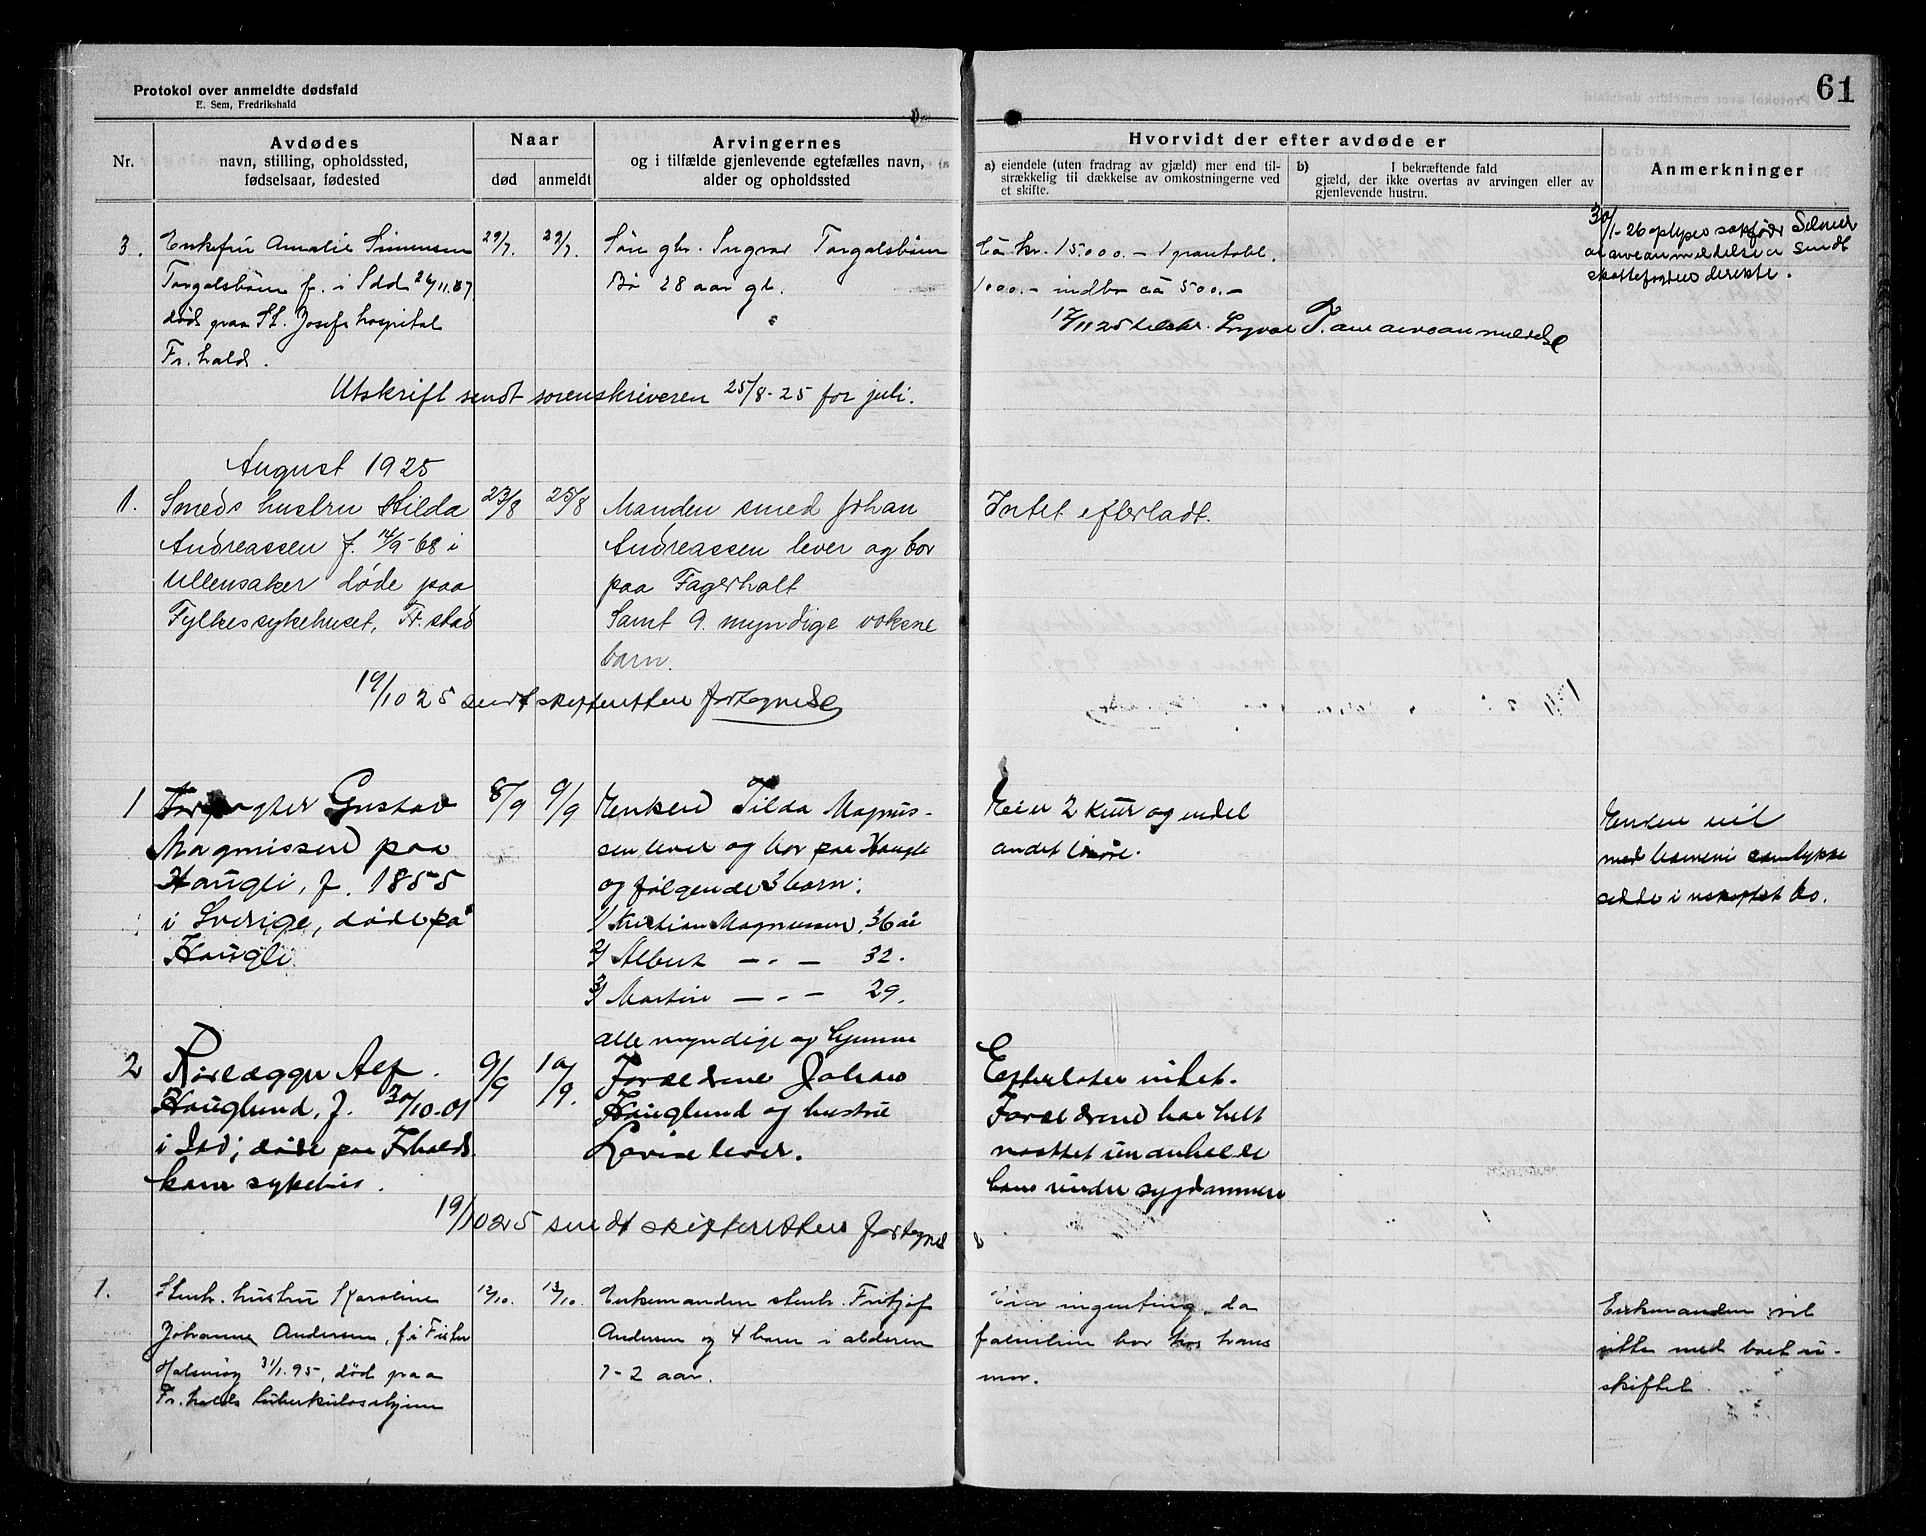 61
Protokol over anmeldte dødsfald
E. Sem, Fredrikshald
Nr.
Avdødes
navn, stilling, opholdssted,
fødselsaar, fødested
Naar
død
anmeldt
Arvingernes
og i tilfælde gjenlevende egtefælles navn,
alder og opholdssted
Hvorvidt der efter avdøde er
a) eiendele (uten fradrag av gjæld) mer end til-
strækkelig til dækkelse av omkostningerne ved
et skifte.
b) I bekræftende fald
gjæld, der ikke overtas av arvingen eller av
gjenlevende hustru.
Anmerkninger
3.
Enkefru Amalie Simensen
Torgalsbøen f. i Idd 26/11.
død paa St. Josefs hospital
Fr.hald.
29/7.
29/7.
Søn gbr. Ingvar Torgalsbøen
28 aar gl.
Ca kr. 15.000.- 1
1000.- indbo ca 500.-
17/11 25 Ingvar T. om arveanmeldelse
30/1-26 oplyses sakfører
at arveanmeldelse er sendt
skattefogden direkte.
Utskrift sendt sorenskriveren 25/8-25 for juli.
August 1925
1.
Smeds hustru Hilda
Andreassen f. 14/9-68 i
Ullensaker døde paa
Fylkessykehuset, Fr.stad
23/8
25/8
Manden smed Johan
Andreassen lever og bor
paa Fagerholt
Samt 9. myndige voksne
barn.
Intet efterladt.
19/10 25 sendt skifteretten fortegnelse
1
Forpagter Gustav
Magnussen paa
Haugli, f. 1855
i Sverige, døde på
Haugli
8/9
9/9
Enken Tilda Magnus-
sen lever og bor paa Haugli
og følgende 3 barn:
1) Kristian Magnussen, 36 år
2) Albert — „ — 32.
3) Martin — „ — 29.
alle myndige og hjemme
Eier 2 kuer og endel
andet løsøre.
Enken vil
med barnenes samtykke
sidde i uskiftet bo.
2
Rørlægger Alf
Hauglund, f. 30/10-01
i Idd; døde paa Frhalds
kom sykehus.
9/9
10/9.
Forældrene Johan
Hauglund og hustru
Lovise lever.
Efterlater intet.
Forældrene har helt
maattet underholde
ham under sygdommen
19/10 25 sendt skifteretten fortegnelse
1.
Stenh. hustru Karoline
Johanne Andersen, f. i
31/1.95, død paa
Fr.halds tuberkulosehjem
12/10.
13/10.
Enkemanden stenh. Fritjof
Andersen og 4 barn i alderen
7-2 aar.
Eier ingenting, da
familien bor hos hans
mor.
Enkemanden vil
sitte med boet u-
skiftet